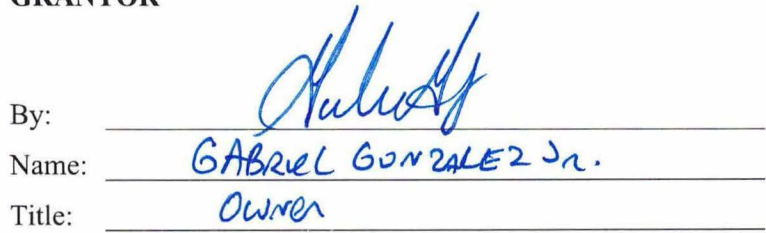 GRANTOR
By:
Name: GABRIEL GONZALEZ Jr.
Title: Owner